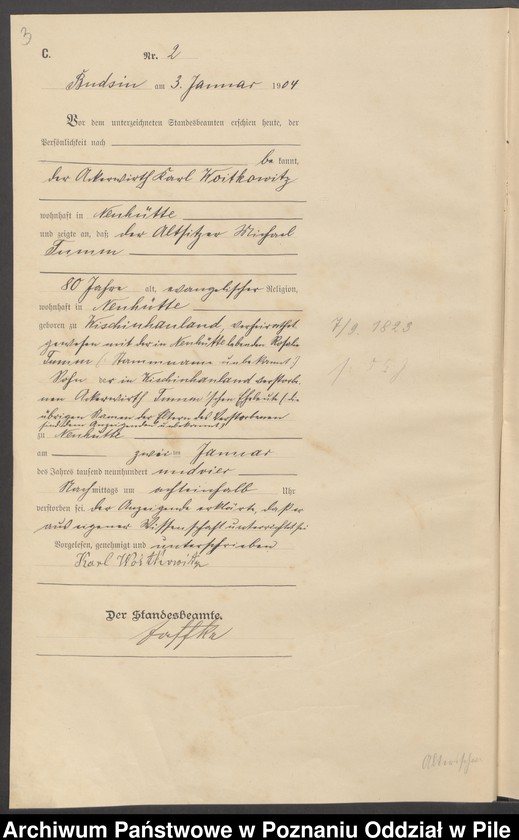 3
C. Nr. 2
Budsin am 3. Januar 1904
Vor dem unterzeichneten Standesbeamten erschien heute, der
Persönlichkeit nach
be kannt,
der Ackerwirth Karl Woitkowitz
wohnhaft in Neuhütte
und zeigte an, daß der Altsitzer Michael
Tumm
80 Jahre alt, evangelischer Religion,
wohnhaft in Neuhütte
geboren zu Kischinhauland, verheirathet
gewesen mit der in Neuhütte lebenden Rosalie
Tumm (Stammname unbekannt)
7/9. 1823
Sohn der in Kischinhauland verstorbe-
nen Ackerwirth Tumm'schen Eheleute (die
übrigen Namen der Eltern des Verstorbenen
sind dem Anzeigenden unbekannt)
zu Neuhütte
am zwei ten Januar
des Jahres tausend neunhundert und vier
Nachmittags um achteinhalb Uhr
verstorben sei. der Anzeigende erklärte, daß er
aus eigener Wissenschaft unterrichtet sei
Vorgelesen, genehmigt und unterschrieben
Karl Woitkowitz
Der Standesbeamte.
Jaffke
Archiwum Państwowe w Poznaniu Oddział w Pile